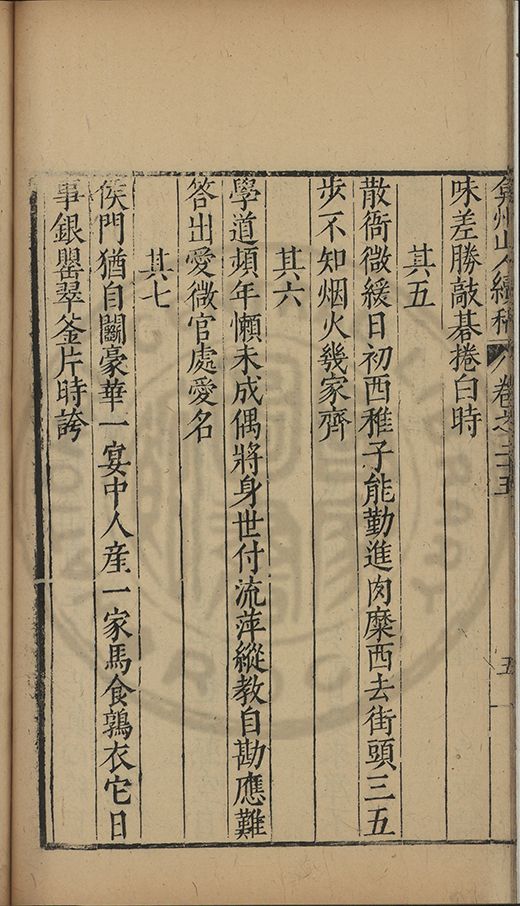 弇州山人續稿 卷之二十五 五
味差勝敲碁捲白時
其五
散衙微緩日初西稚子能勤進肉糜西去街頭三五
步不知烟火幾家齊
其六
學道頻年懶未成偶將身世付流萍縱教自勘應難
答出愛微官處愛名
其七
侯門猶自鬭豪華一宴中人産一家馬食鶉衣它日
事銀甖翠釜片時誇